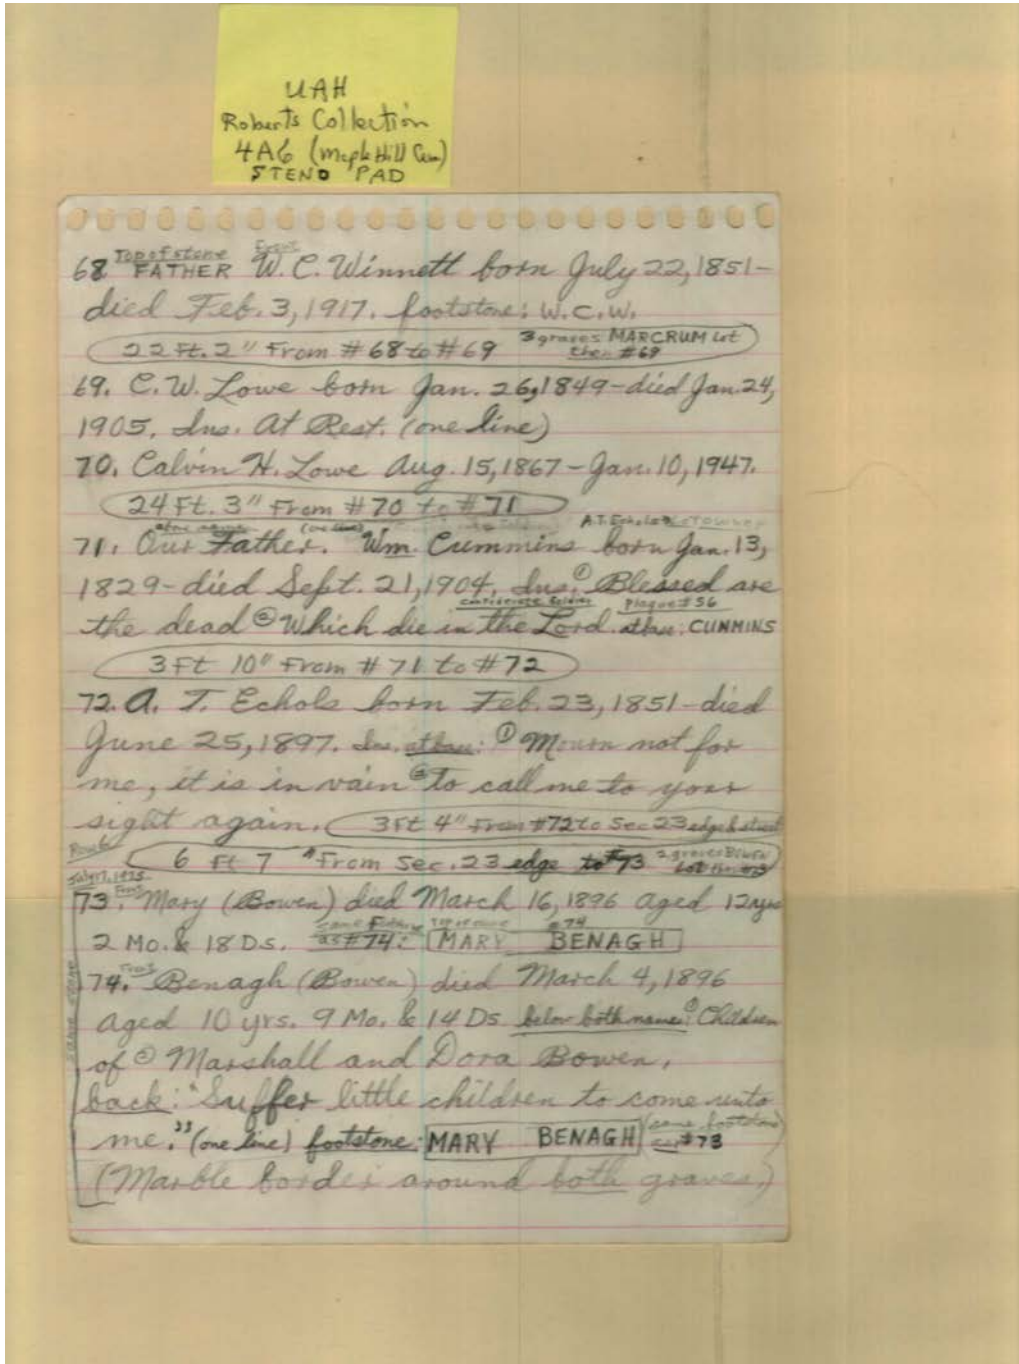 UAH
Roberts Collection
4A6 (Maple Hill Cem)
STENO PAD
Top of stone Front
68 FATHER W. C. Winnett born July 22, 1851-
died Feb. 3, 1917. footstone: W.C.W.
22 Ft. 2" From #68 to #69 3 graves MARCRUM Lot
then #69
69. C. W. Lowe born Jan. 26, 1849-died Jan. 24,
1905. Ins. At Rest. (one line)
70. Calvin H. Lowe Aug. 15, 1867-Jan. 10, 1947.
24 Ft. 3" From #70 to #71
above name (one line) A.T. Echols
71. Our Father. Wm. Cummins born Jan. 13,
1829-died Sept. 21, 1904. Ins: ① Blessed are
Confederate Soldier Plaque #56
the dead ② Which die in the Lord. at base: CUMMINS
3 Ft 10" From #71 to #72
72. A. T. Echols born Feb. 23, 1851-died
June 25, 1897. Ins. at base: ① Mourn not for
me, it is in vain ② To call me to your
sight again. 3 Ft 4" From #72 to Sec 23 edge & street
Row 6
6 Ft 7 " From Sec. 23 edge to #73 2 graves Bowen
Lot then #73
July 17, 1975
Front
73. Mary (Bowen) died March 16, 1896 aged 12 yrs
same Footstone Top of stone #74
2 Mo. & 18 Ds. as #74: MARY BENAGH
Front
74. Benagh (Bowen) died March 4, 1896
aged 10 yrs. 9 Mo. & 14 Ds. below both names: ① Children
of ② Marshall and Dora Bowen.
back: "Suffer little children to come unto
me." (one line) footstone: MARY BENAGH (same footstone)
as #73
(Marble border around both graves.)
same stone